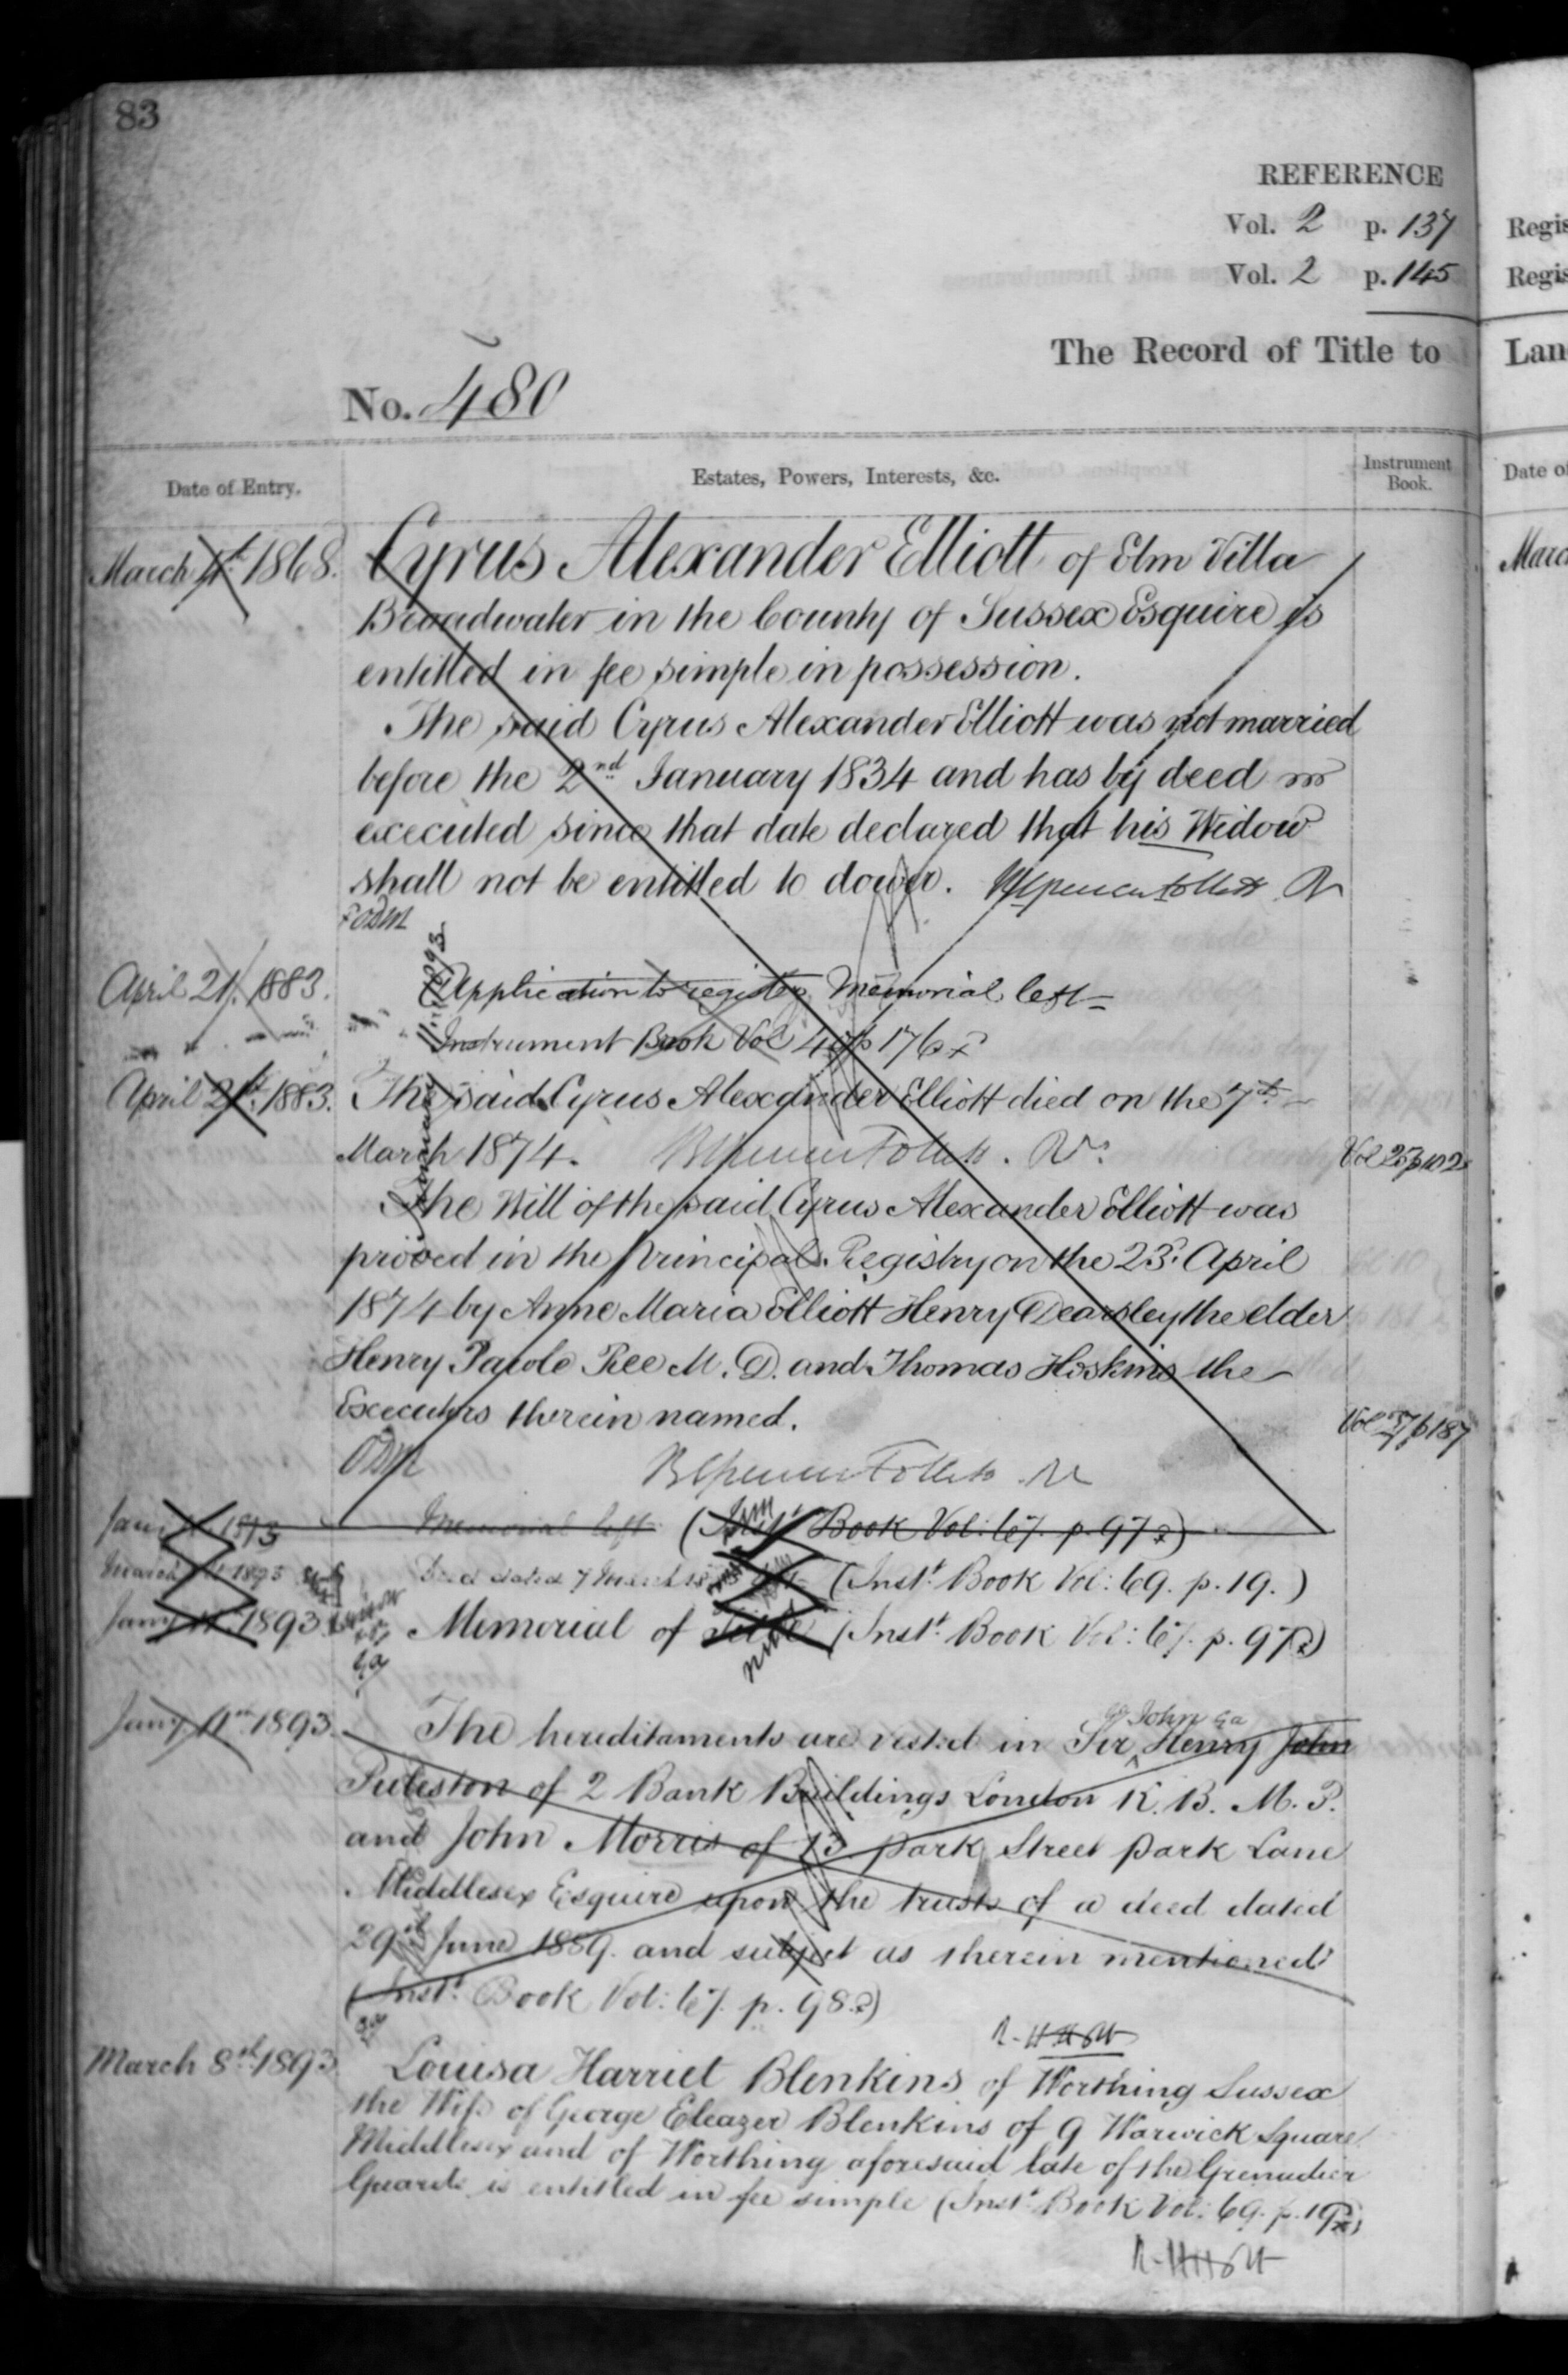 83
REFERENCE
Vol. 2 p. 137
Vol. 2 p. 145
The Record of Title to
No. 480
Date of Entry.
Estates, Powers, Interests, &c.
Instrument Book.
March 1868. Cyrus Alexander Elliott of Elm Villa
Broadwater in the County of Sussex Esquire is
entitled in fee simple in possession.
The said Cyrus Alexander Elliott was not married
before the 2nd January 1834 and has by deed
executed since that date declared that his Widow
shall not be entitled to dower.
April 21. 1883. Application to register Memorial left
Instrument Book Vol p 176
April 21st 1883. The said Cyrus Alexander Elliott died on the 7th
March 1874.
The Will of the said Cyrus Alexander Elliott was
proved in the Principal Registry on the 23d April
1874 by Anne Maria Elliott Henry Dearsley the elder
Henry Ree M. D. and Thomas Hoskins the
Executors therein named.
p 187
Memorial left (Inst. Book Vol: 67. p. 97)
March 1893 Deed dated 7 March (Inst. Book Vol: 69. p. 19.)
Jany 11th 1893 Memorial of (Inst. Book Vol: 67. p. 97)
Jany 11th 1893. The hereditaments are vested in Sir John Henry John
Puleston of 2 Bank Buildings London K. B. M. P.
and John Morris of 13 Park Street Park Lane
Middlesex Esquire upon the trusts of a deed dated
29th June 1889. and subject as therein mentioned
(Inst. Book Vol: 67. p. 98)
March 8th 1893 Louisa Harriet Blenkins of Worthing Sussex
the Wife of George Eleazer Blenkins of 9 Warwick Square
Middlesex and of Worthing aforesaid late of the Grenadier
Guards is entitled in fee simple (Inst. Book Vol: 69. p. 19)
Regis
Regis
Lan
Date o
Marc